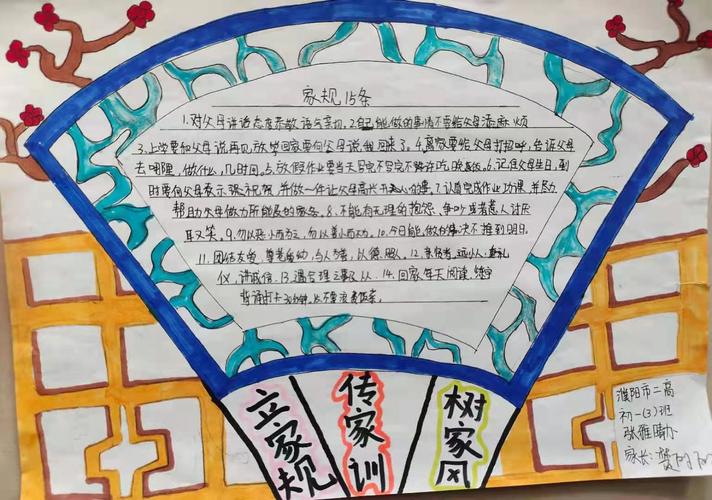 家规15条
1.对父母讲话态度恭敬,语气亲切.2.自己能做的事情不要给父母添麻烦
3.上学要和父母说再见,放学回家要向父母说我回来了.4.离家要给父母打招呼,告诉父母
去哪里,做什么,几时间.5.放假作业要当天写完不写完不能吃晚饭.6.记住父母生日,到
时要向父母表示祝贺,并做一件让父母高兴开心的事.7.认真完成作业功课,并尽力
帮助父母做力所能及的家务.8.不能有无理的抱怨,争吵或者惹人讨厌
取笑.9.勿以恶小而为之,勿以善小而不为.10.今日能做的事决不推到明日.
11.团结友爱,尊老爱幼,与人为善,以德服人.12.亲贤者,远小人,重礼
仪,讲诚信.13.遇合理之事,14.回家每天阅读
背诵打卡30分钟.15.不要浪费粮食.
立家规
传家训
树家风
濮阳市二高
初一(3)班
张雅晴
家长: